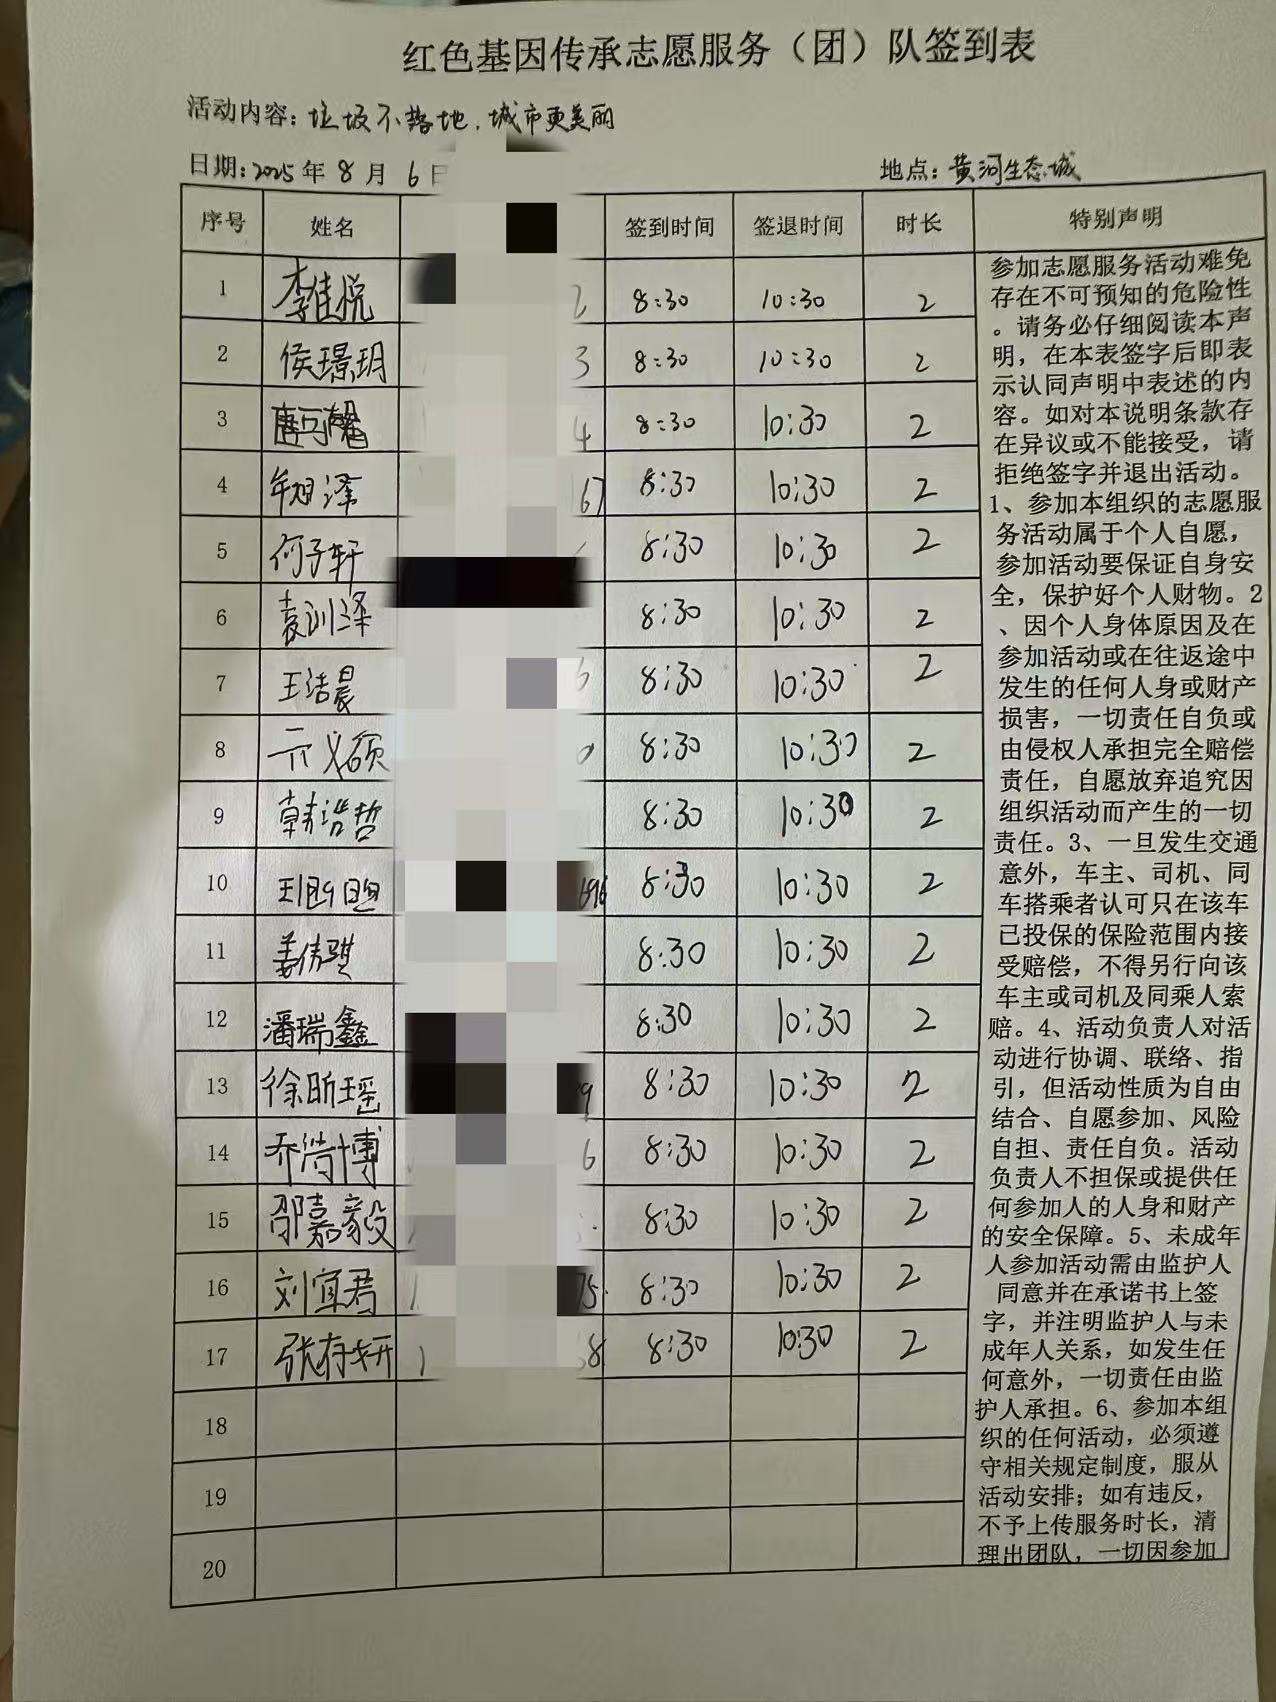 红色基因传承志愿服务（团）队签到表
活动内容：垃圾不落地，城市更美丽
日期：2025年8月6日 地点：黄河生态城
序号 姓名 签到时间 签退时间 时长 特别声明
1 李佳悦 2 8:30 10:30 2
2 侯璟玥 3 8:30 10:30 2
3 唐可馨 4 8:30 10:30 2
4 年旭泽 67 8:30 10:30 2
5 何子轩 8:30 10:30 2
6 袁训泽 8:30 10:30 2
7 王洁晨 6 8:30 10:30 2
8 亓义硕 0 8:30 10:30 2
9 韩浩哲 8:30 10:30 2
10 8:30 10:30 2
11 姜倩骐 8:30 10:30 2
12 潘瑞鑫 8:30 10:30 2
13 徐昕瑶 9 8:30 10:30 2
14 乔浩博 6 8:30 10:30 2
15 邵嘉毅 8:30 10:30 2
16 刘宜君 1 75 8:30 10:30 2
17 张存妍 1 8 8:30 10:30 2
18
19
20
参加志愿服务活动难免
存在不可预知的危险性
。请务必仔细阅读本声
明，在本表签字后即表
示认同声明中表述的内
容。如对本说明条款存
在异议或不能接受，请
拒绝签字并退出活动。
1、参加本组织的志愿服
务活动属于个人自愿，
参加活动要保证自身安
全，保护好个人财物。2
、因个人身体原因及在
参加活动或在往返途中
发生的任何人身或财产
损害，一切责任自负或
由侵权人承担完全赔偿
责任，自愿放弃追究因
组织活动而产生的一切
责任。3、一旦发生交通
意外，车主、司机、同
车搭乘者认可只在该车
已投保的保险范围内接
受赔偿，不得另行向该
车主或司机及同乘人索
赔。4、活动负责人对活
动进行协调、联络、指
引，但活动性质为自由
结合、自愿参加、风险
自担、责任自负。活动
负责人不担保或提供任
何参加人的人身和财产
的安全保障。5、未成年
人参加活动需由监护人
同意并在承诺书上签
字，并注明监护人与未
成年人关系，如发生任
何意外，一切责任由监
护人承担。6、参加本组
织的任何活动，必须遵
守相关规定制度，服从
活动安排；如有违反，
不予上传服务时长，清
理出团队，一切因参加